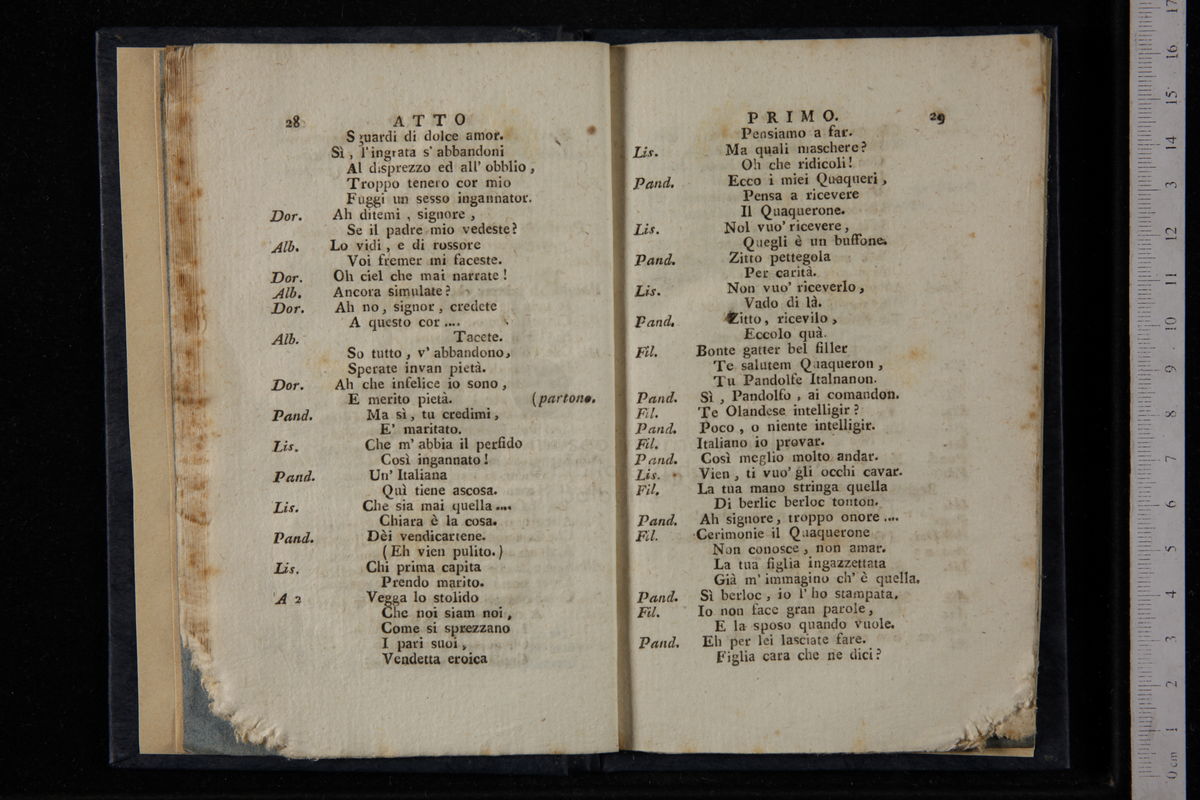 28 ATTO
Sguardi di dolce amor.
Sì, l'ingrata s' abbandoni
Al disprezzo ed all' obblio,
Troppo tenero cor mio
Fuggi un sesso ingannator.
Dor. Ah ditemi, signore,
Se il padre mio vedeste?
Alb. Lo vidi, e di rossore
Voi fremer mi faceste.
Dor. Oh ciel che mai narrate!
Alb. Ancora simulate?
Dor. Ah no, signor, credete
A questo cor....
Alb. Tacete.
So tutto, v' abbandono,
Sperate invan pietà.
Dor. Ah che infelice io sono,
E merito pietà. (partono.
Pand. Ma sì, tu credimi,
E' maritato.
Lis. Che m' abbia il perfido
Così ingannato!
Pand. Un' Italiana
Quì tiene ascosa.
Lis. Che sia mai quella....
Chiara è la cosa.
Pand. Dèi vendicartene.
(Eh vien pulito.)
Lis. Chi prima capita
Prendo marito.
A 2 Vegga lo stolido
Che noi siam noi,
Come si sprezzano
I pari suoi,
Vendetta eroica
PRIMO. 29
Pensiamo a far.
Lis. Ma quali maschere?
Oh che ridicoli!
Pand. Ecco i miei Quaqueri,
Pensa a ricevere
Il Quaquerone.
Lis. Nol vuo' ricevere,
Quegli è un buffone.
Pand. Zitto pettegola
Per carità.
Lis. Non vuo' riceverlo,
Vado di là.
Pand. Zitto, ricevilo,
Eccolo quà.
Fil. Bonte gatter bel filler
Te salutem Quaqueron,
Tu Pandolfe Italnanon.
Pand. Sì, Pandolfo, ai comandon.
Fil. Te Olandese intelligir?
Pand. Poco, o niente intelligir.
Fil. Italiano io provar.
Pand. Così meglio molto andar.
Lis. Vien, ti vuo' gli occhi cavar.
Fil. La tua mano stringa quella
Di berlic berloc tonton.
Pand. Ah signore, troppo onore....
Fil. Cerimonie il Quaquerone
Non conosce, non amar.
La tua figlia ingazzettata
Già m' immagino ch' è quella.
Pand. Sì berloc, io l' ho stampata.
Fil. Io non face gran parole,
E la sposo quando vuole.
Pand. Eh per lei lasciate fare.
Figlia cara che ne dici?
0 cm 1 2 3 4 5 6 7 8 9 10 11 12 13 14 15 16 17